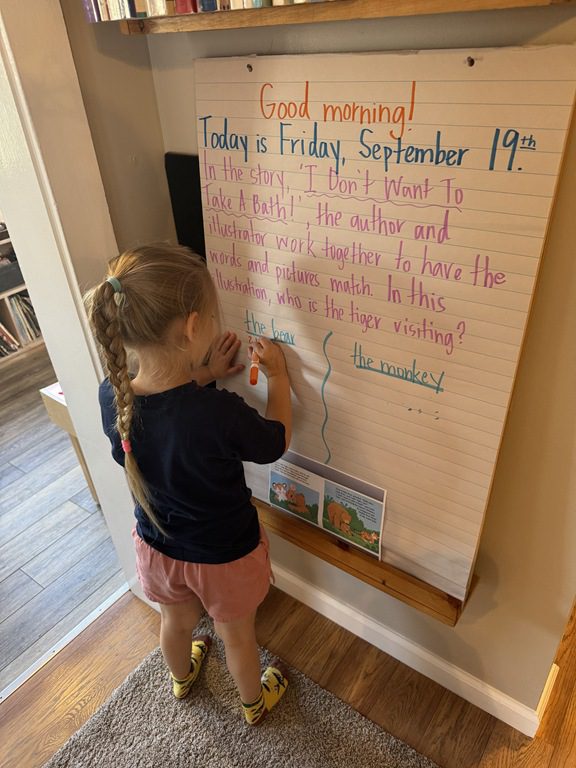 Good morning!
Today is Friday, September 19th.
In the story, 'I Don't Want To
Take A Bath!', the author and
illustrator work together to have the
words and pictures match. In this
illustration, who is the tiger visiting?
the bear
the monkey